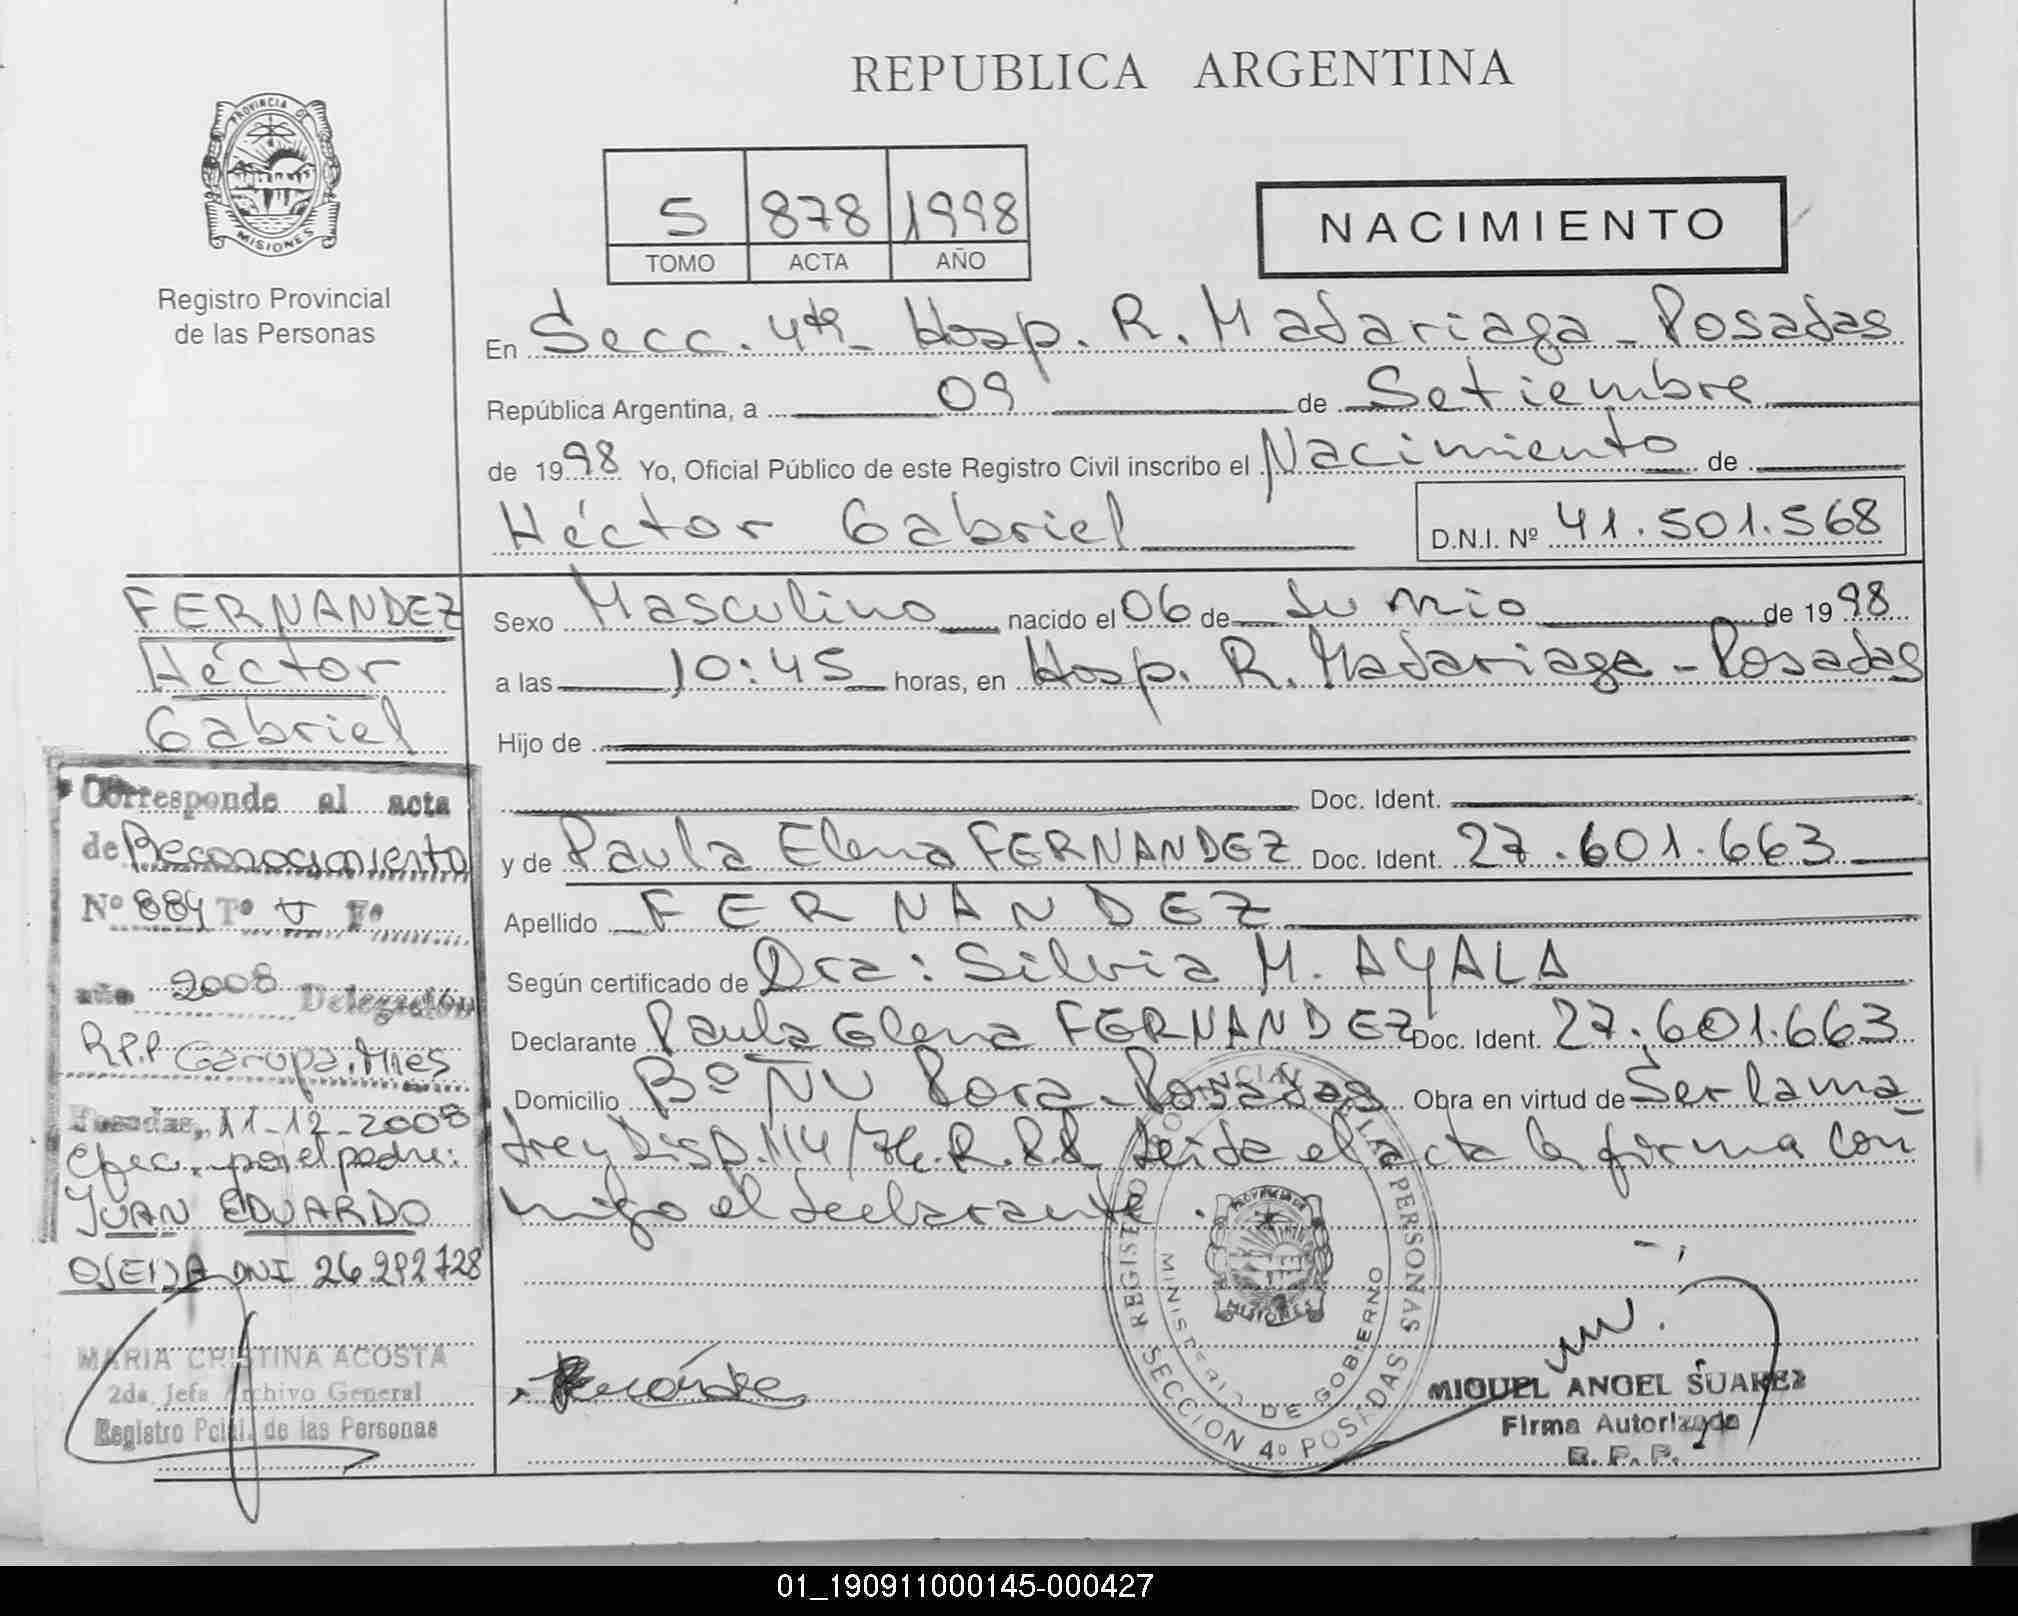 REPUBLICA ARGENTINA
PROVINCIA DE
MISIONES
Registro Provincial
de las Personas
5 878 1998
TOMO ACTA AÑO
NACIMIENTO
En Secc. 4ta Hosp. R. Madariaga - Posadas
República Argentina, a 09 de Setiembre
de 1998 Yo, Oficial Público de este Registro Civil inscribo el Nacimiento de
Héctor Gabriel D.N.I. Nº 41.501.568
FERNANDEZ
Héctor
Gabriel
Sexo Masculino nacido el 06 de Junio de 1998
a las 10:45 horas, en Hosp. R. Madariaga - Posadas
Hijo de
Doc. Ident.
y de Paula Elena FERNANDEZ Doc. Ident. 27.601.663
Apellido FERNANDEZ
Según certificado de Dra: Silvia M. AYALA
Declarante Paula Elena FERNANDEZ Doc. Ident. 27.601.663
Domicilio Bº ÑU Pora - Posadas Obra en virtud de Ser la ma
dre y Disp. 114/ R.P.P. Leida el acta la firma con
migo el declarante.
Corresponde al acta
de Reconocimiento
Nº 884 Tº V Fº
año 2008 Delegación
R.P.P Garupa. Mnes
Posadas, 11-12-2008
Efec. por el padre:
JUAN EDUARDO
OJEDA DNI 26.292728
MARIA CRISTINA ACOSTA
2da. Jefe Archivo General
Registro Pcial. de las Personas
REGISTRO PROVINCIAL DE LAS PERSONAS
MINISTERIO DE GOBIERNO
SECCION 4º POSADAS
MISIONES
MIGUEL ANGEL SUAREZ
Firma Autorizada
R. P. P.
01_190911000145-000427